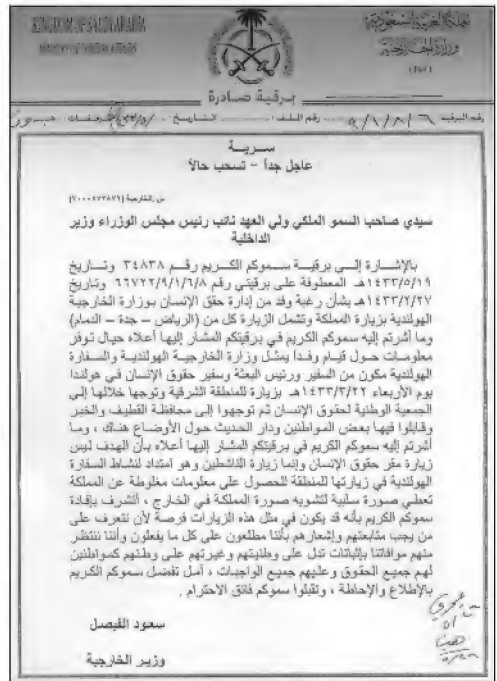 KINGDOM OF SAUDI ARABIA
MINISTRY OF FOREIGN AFFAIRS
المملكة العربية السعودية
وزارة الخارجية
برقية صادرة
رقم البرقية ٩/١/٨/٦ رقم الملف التاريخ
ســريــة
عاجل جداً - تسحب حالاً
من الخارجية
سيدي صاحب السمو الملكي ولي العهد نائب رئيس مجلس الوزراء وزير
الداخلية
بالإشــارة إلــى برقيــة ســموكم الكــريم رقــم ٣٤٨٣٨ وتــاريخ
١٤٣٣/٥/١٩هـ المعطوفة على برقيتي رقم ٦٦٧٢٢/٩/١/٦/٨ وتاريخ
١٤٣٣/٢/٢٧هـ بشأن رغبة وفد من إدارة حقق الإنسان بوزارة الخارجية
الهولندية بزيارة المملكة وتشمل الزيارة كل من (الرياض – جدة – الدمام)
وما أشرتم إليه سموكم الكريم في برقيتكم المشار إليها أعلاه حيال توفر
معلومـات حـول قيـام وفـدا يمثـل وزارة الخارجيـة الهولنديـة والسـفارة
الهولندية مكون من السفير ورئيس البعثة وسفير حقوق الإنسان في هولندا
يوم الأربعاء ١٤٣٣/٣/٢٢هـ بزيارة للمنطقة الشرقية وتوجها خلالها إلى
الجمعية الوطنية لحقوق الإنسان ثم توجهوا إلى محافظة القطيف والخبر
وقابلوا فيها بعض المواطنين ودار الحديث حول الأوضاع هناك ، وما
أشرتم إليه سموكم الكريم في برقيتكم المشار إليها أعلاه بأن الهدف ليس
زيارة مقر حقوق الإنسان وإنما زيارة الناشطين وهو امتداد لنشاط السفارة
الهولندية في زيارتها للمنطقة للحصول على معلومات مغلوطة عن المملكة
تعطي صورة سلبية لتشويه صورة المملكة في الخارج ، أتشرف بإفادة
سموكم الكريم بأنه قد يكون في مثل هذه الزيارات فرصة لأن نتعرف على
من يجب متابعتهم وإشعارهم بأننا مطلعون على كل ما يفعلون وأننا ننتظر
منهم موافاتنا بإثباتات تدل على وطنيتهم وغيرتهم على وطنهم كمواطنين
لهم جميع الحقوق وعليهم جميع الواجبات ، أمل تفضل سموكم الكريم
بالإطلاع والإحاطة ، وتقبلوا سموكم فائق الاحترام .
سعود الفيصل
وزير الخارجية